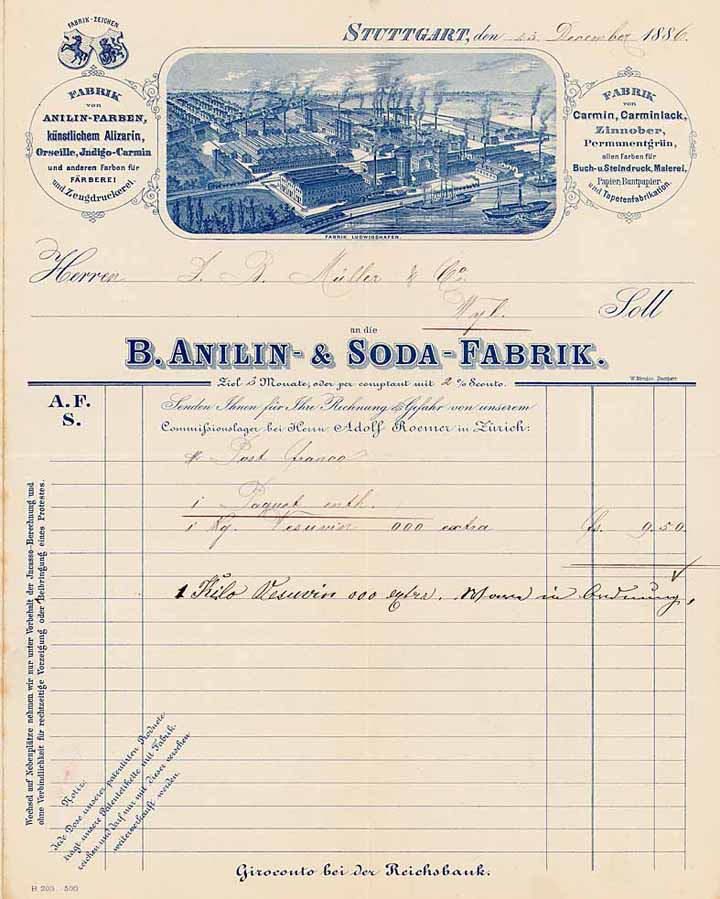 FABRIK-ZEICHEN
STUTTGART, den 23. December 1886.
FABRIK
von
ANILIN-FARBEN,
künstlichem Alizarin,
Orseille, Indigo-Carmin
und anderen Farben für
FÄRBEREI
und Zeugdruckerei.
FABRIK
von
Carmin, Carminlack,
Zinnober,
Permanentgrün,
allen Farben für
Buch- u. Steindruck, Malerei,
Papier, Buntpapier-
und Tapetenfabrikation.
FABRIK LUDWIGSHAFEN.
Herren J. B. Müller & Co.
Wyl. Soll
an die
B. ANILIN- & SODA-FABRIK.
Ziel 3 Monate, oder per comptant mit 2 % Sconto.
A. F.
S.
Senden Ihnen für Ihre Rechnung & Gefahr von unserem
Commissionslager bei Herrn Adolf Roemer in Zürich:
Post franco
1 Paquet enth.
1 Kg. Vesuvin 000 extra fs. 9.50.
1 Kilo Vesuvin 000 extra. Waare in Ordnung,
Wechsel auf Nebenplätze nehmen wir nur unter Vorbehalt der Incasso-Berechnung und
ohne Verbindlichkeit für rechtzeitige Vorzeigung oder Beibringung eines Protestes.
Notiz:
Jede Dose unserer patentirten Producte
trägt unsere Patentetikette mit Fabrik-
zeichen und darf nur mit dieser versehen
weiterverkauft werden.
Giroconto bei der Reichsbank.
B. 203. - 500